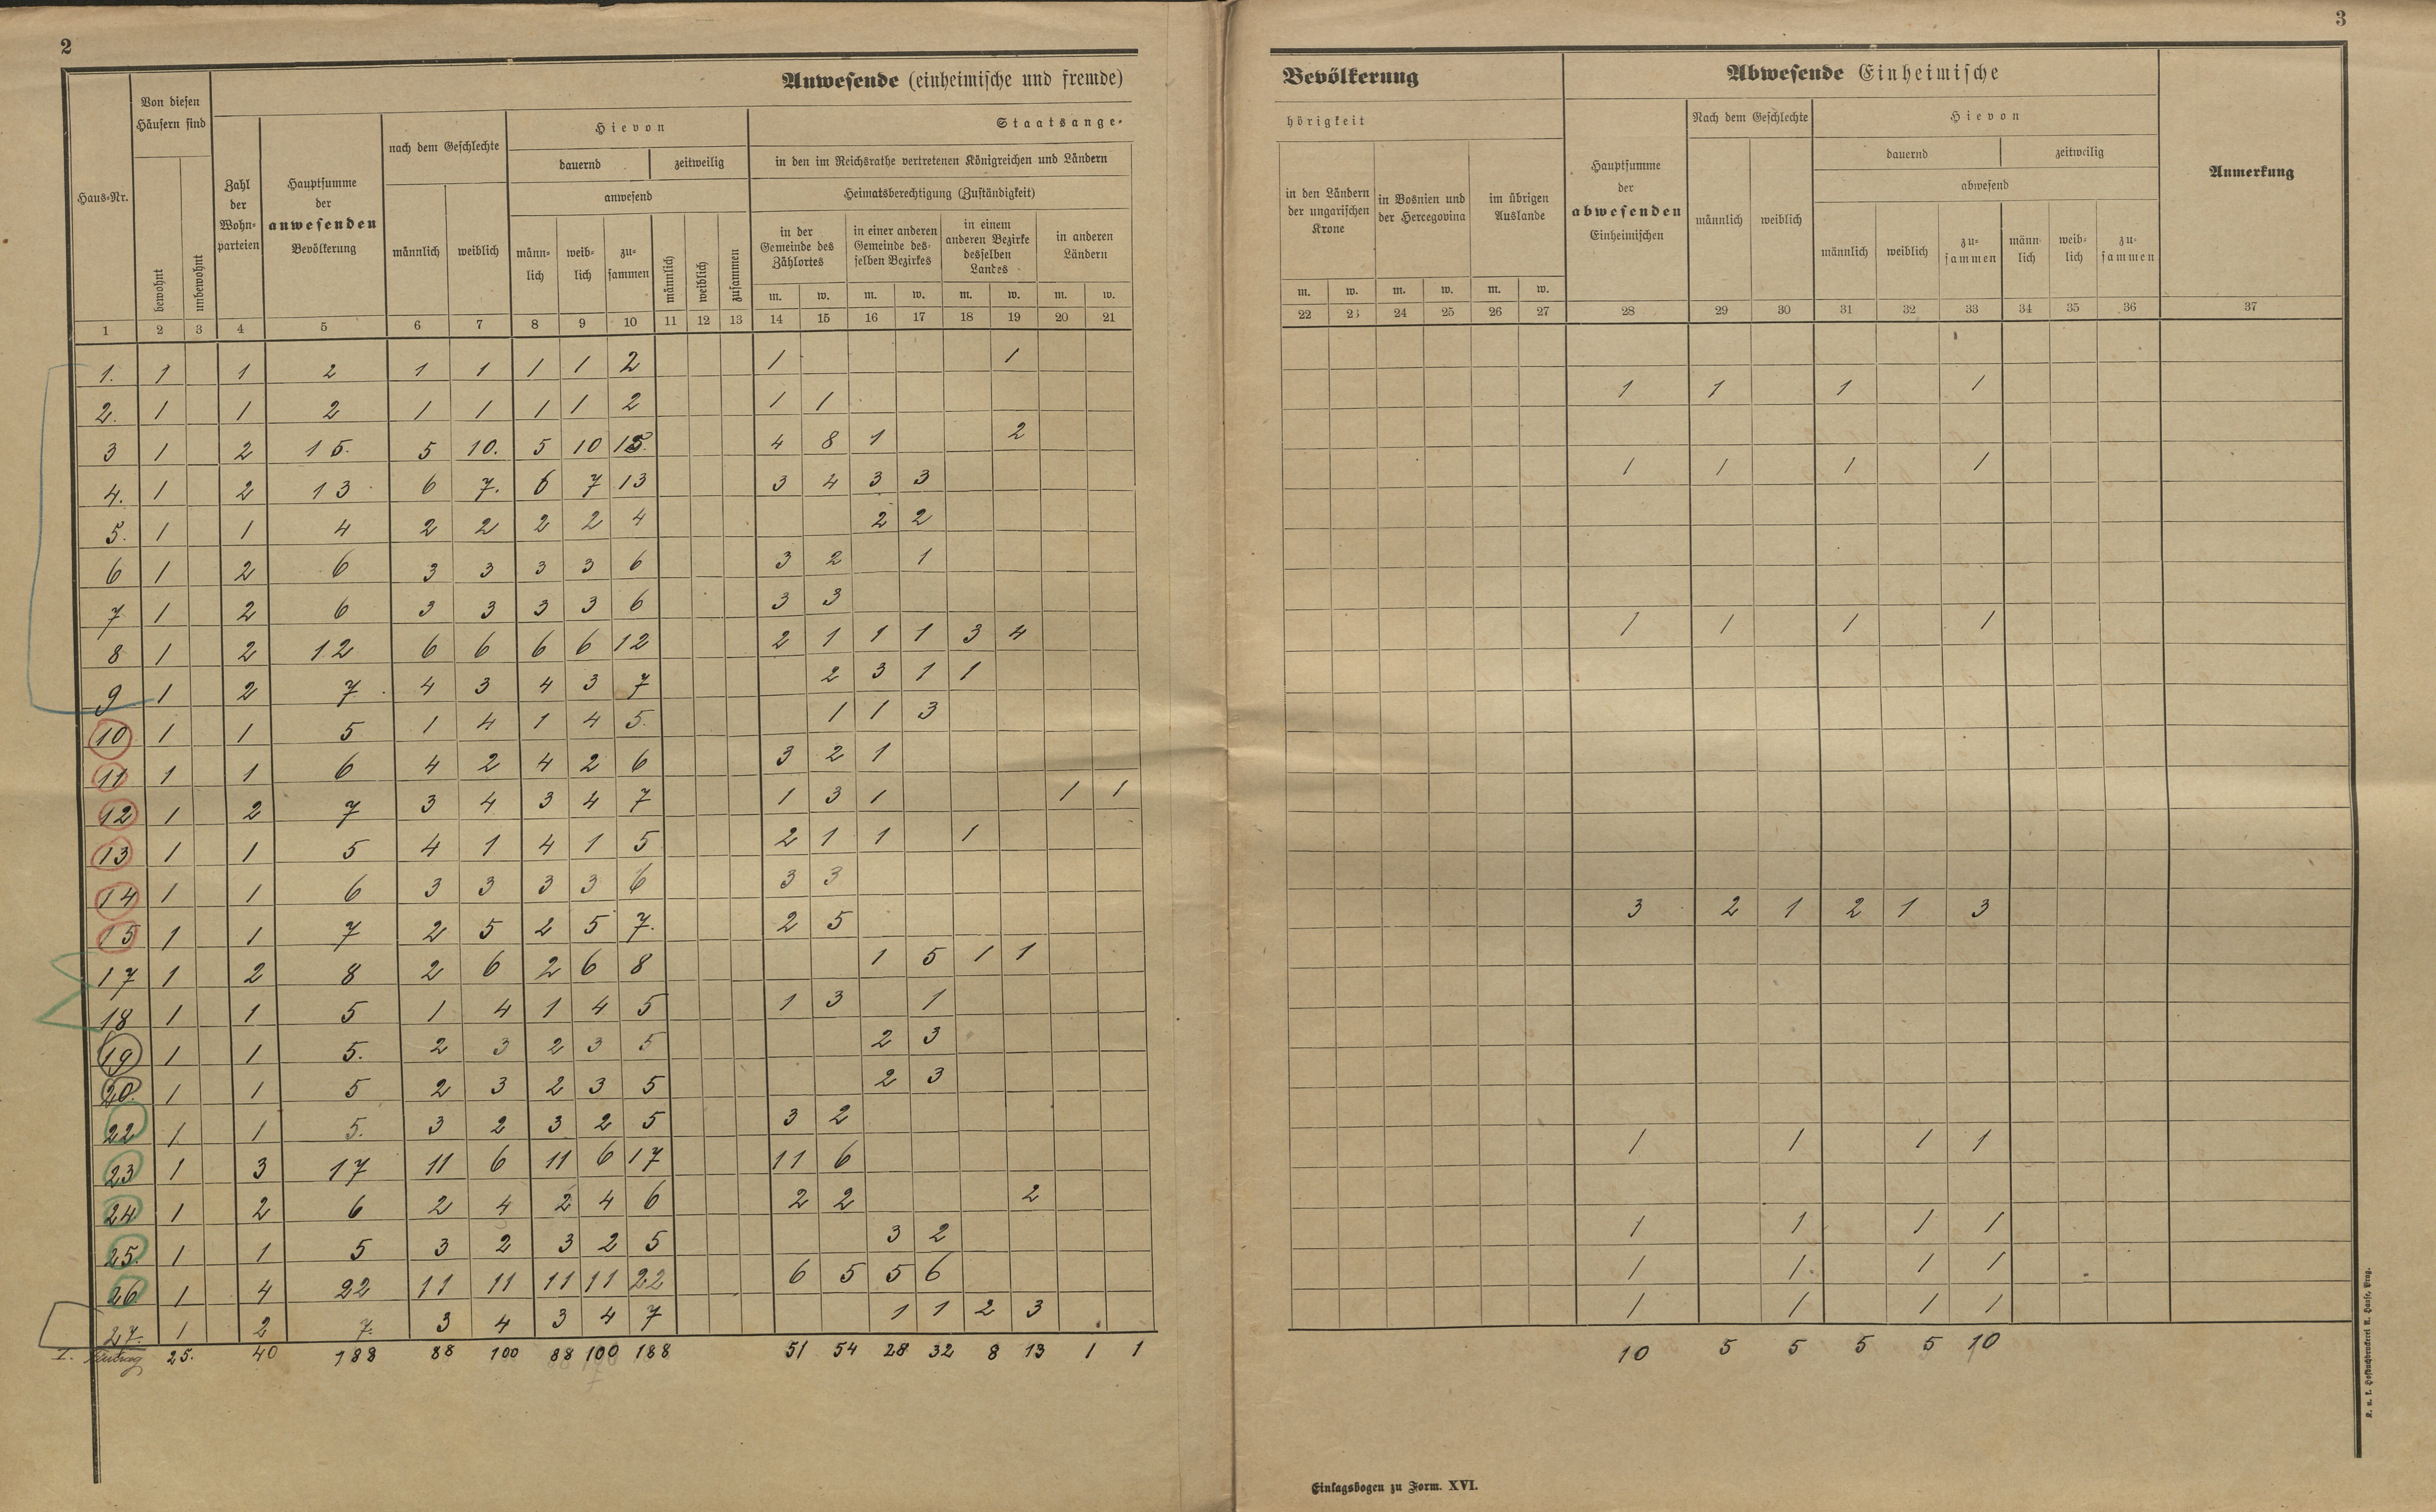 2
Anwesende (einheimische und fremde)
Von diesen Häusern sind
Hievon
Staatsange-
nach dem Geschlechte
dauernd
zeitweilig
in den im Reichsrathe vertretenen Königreichen und Ländern
Haus-Nr.
Zahl der Wohn-parteien
Hauptsumme der anwesenden Bevölkerung
anwesend
Heimatsberechtigung (Zuständigkeit)
bewohnt
unbewohnt
männlich
weiblich
männ-lich
weib-lich
zu-sammen
männlich
weiblich
zusammen
in der Gemeinde des Zählortes
in einer anderen Gemeinde des-selben Bezirkes
in einem anderen Bezirke desselben Landes
in anderen Ländern
m. w. m. w. m. w. m. w.
1 2 3 4 5 6 7 8 9 10 11 12 13 14 15 16 17 18 19 20 21
1. 1 1 2 1 1 1 1 2 1 1
2. 1 1 2 1 1 1 1 2 1 1
3 1 2 15. 5 10. 5 10 15. 4 8 1 2
4. 1 2 13 6 7. 6 7 13 3 4 3 3
5. 1 1 4 2 2 2 2 4 2 2
6 1 2 6 3 3 3 3 6 3 2 1
7 1 2 6 3 3 3 3 6 3 3
8 1 2 12 6 6 6 6 12 2 1 1 1 3 4
9 1 2 7 4 3 4 3 7 2 3 1 1
10 1 1 5 1 4 1 4 5. 1 1 3
11 1 1 6 4 2 4 2 6 3 2 1
12 1 2 7 3 4 3 4 7 1 3 1 1 1
13 1 1 5 4 1 4 1 5 2 1 1 1
14 1 1 6 3 3 3 3 6 3 3
15 1 1 7 2 5 2 5 7. 2 5
17 1 2 8 2 6 2 6 8 1 5 1 1
18 1 1 5 1 4 1 4 5 1 3 1
19 1 1 5. 2 3 2 3 5 2 3
20. 1 1 5 2 3 2 3 5 2 3
22 1 1 5. 3 2 3 2 5 3 2
23 1 3 17 11 6 11 6 17 11 6
24 1 2 6 2 4 2 4 6 2 2 2
25. 1 1 5 3 2 3 2 5 3 2
26 1 4 22 11 11 11 11 22 6 5 5 6
27. 1 2 7. 3 4 3 4 7 1 1 2 3
I. 25. 40 188 88 100 88 100 188 51 54 28 32 8 13 1 1
3
Bevölkerung
Abwesende Einheimische
hörigkeit
Nach dem Geschlechte
Hievon
dauernd
zeitweilig
in den Ländern der ungarischen Krone
in Bosnien und der Hercegovina
im übrigen Auslande
Hauptsumme der abwesenden Einheimischen
männlich
weiblich
abwesend
Anmerkung
männlich
weiblich
zu-sammen
männ-lich
weib-lich
zu-sammen
m. w. m. w. m. w.
22 23 24 25 26 27 28 29 30 31 32 33 34 35 36 37
1 1 1 1
1 1 1 1
1 1 1 1
3 2 1 2 1 3
1 1 1 1
1 1 1 1
1 1 1 1
1 1 1 1
10 5 5 5 5 10
Einlagsbogen zu Form. XVI.
K. u. k. Hofbuchdruckerei A. Haase, Prag.